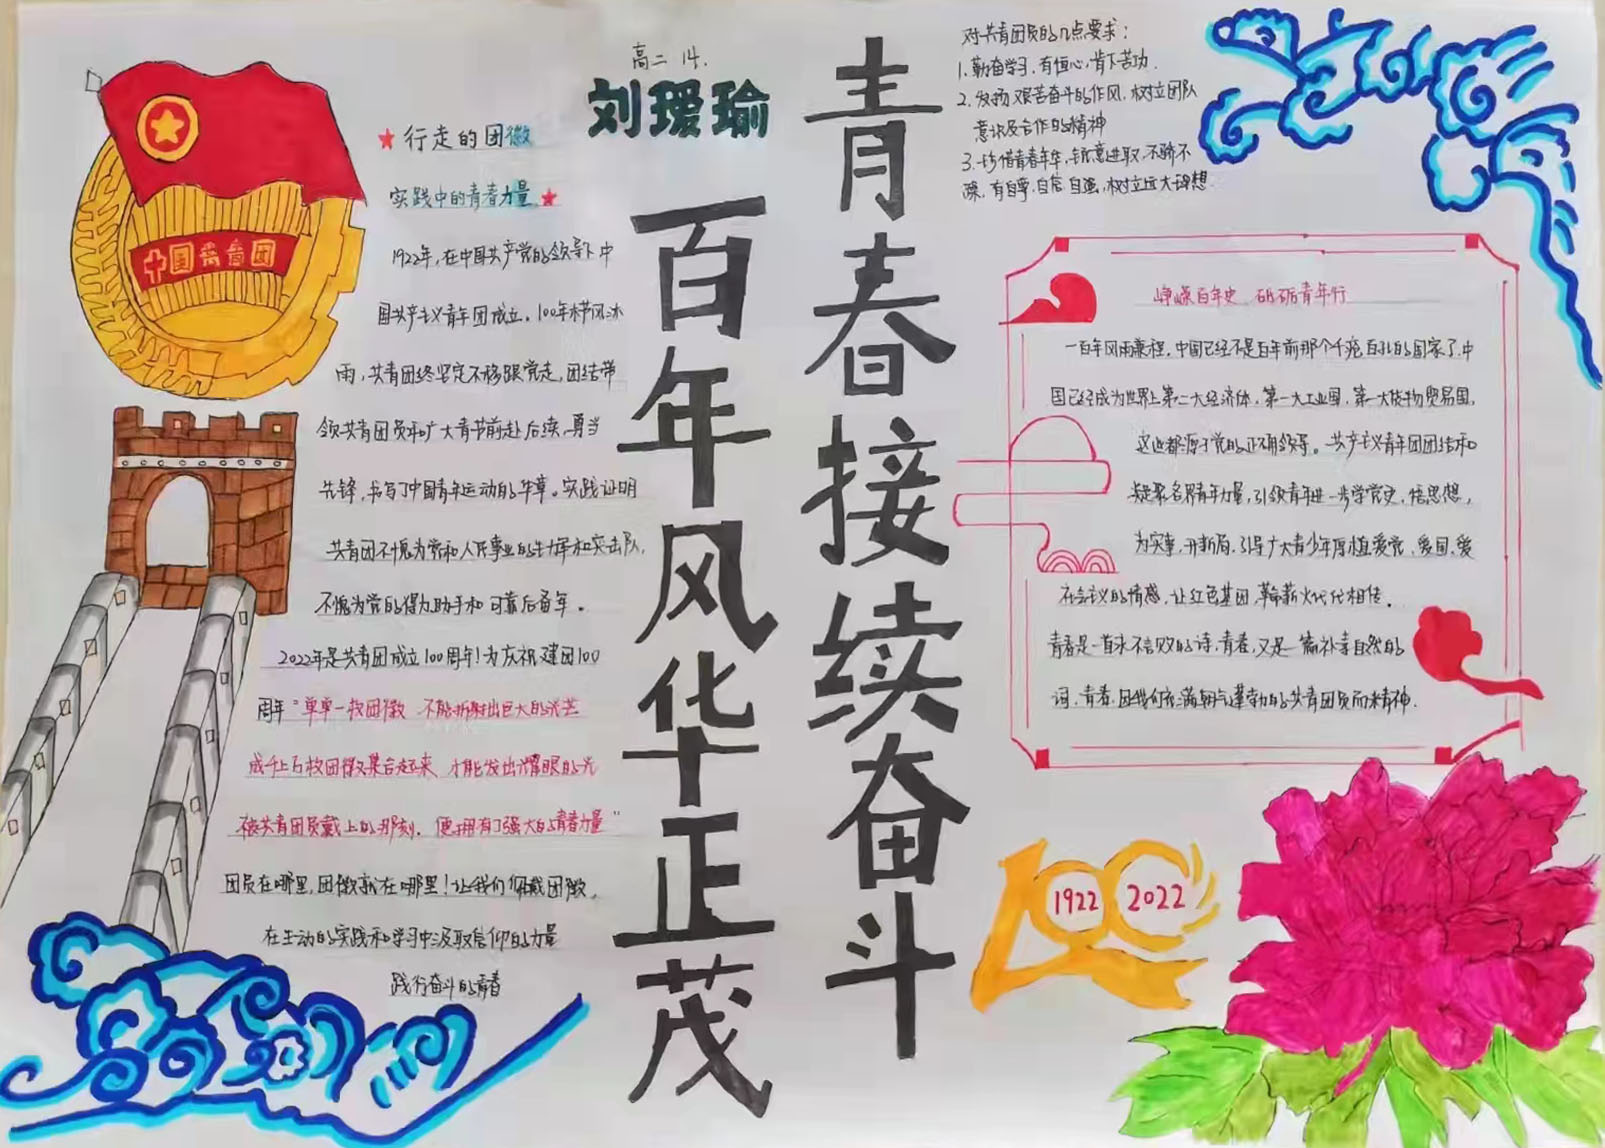 高二 14.
刘瑷瑜
青春接续奋斗
百年风华正茂
中国共青团
行走的团徽
实践中的青春力量
1922年,在中国共产党的领导下中
国共产主义青年团成立。100年栉风沐
雨,共青团终坚定不移跟党走,团结带
领共青团员和广大青节前赴后续,勇当
先锋,书写了中国青年运动的华章。实践证明
共青团不愧为党和人民事业的生力军和突击队,
不愧为党的得力助手和可靠后备军。
2022年是共青团成立100周年!为庆祝建团100
周年"单单一枚团徽 不能折射出巨大的光芒
成千上万枚团徽集合起来 才能发出耀眼的光
被共青团员戴上的那刻,便拥有了强大的青春力量"
团员在哪里,团徽就在哪里!让我们佩戴团徽,
在生动的实践和学习中汲取信仰的力量
践行奋斗的青春
对共青团员的几点要求:
1.勤奋学习,有恒心,肯下苦功.
2.发扬艰苦奋斗的作风,树立团队
意识及合作的精神
3.珍惜青春年华,锐意进取,不骄不
躁,有自尊,自信,自强,树立远大理想.
峥嵘百年史 砥砺青年行
一百年风雨兼程,中国已经不是百年前那个千疮百孔的国家了,中
国已经成为世界上第二大经济体,第一大工业国,第一大货物贸易国,
这些都源于党的正确领导。共产主义青年团团结和
凝聚各界青年力量,引领青年进一步学党史,悟思想,
为实事,开新局,引导广大青少年厚植爱党,爱国,爱
社会主义的情感,让红色基因,革命薪火代代相传。
青春是一首永不言败的诗,青春,又是一篇补奉自然的
词,青春,因我们充满朝气蓬勃的共青团员而来精神.
1922 2022